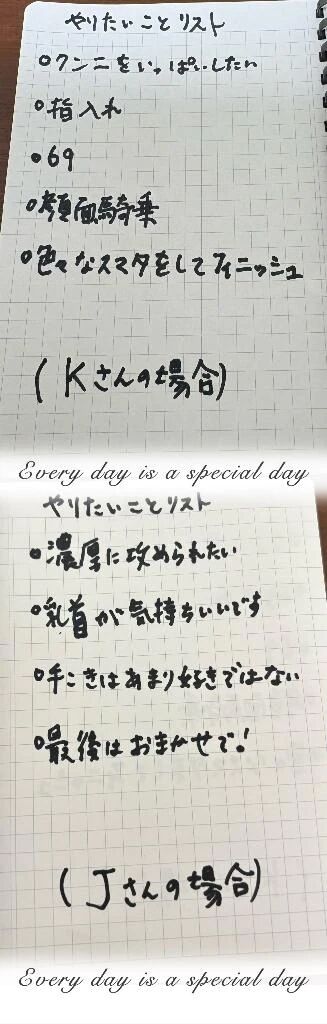 やりたいことリスト
クンニをいっぱいしたい
指入れ
69
顔面騎乗
色々なスマタをしてフィニッシュ
(Kさんの場合)
Every day is a special day
やりたいことリスト
濃厚に攻められたい
乳首が気持ちいいです
手こきはあまり好きではない
最後はおまかせで!
(Jさんの場合)
Every day is a special day